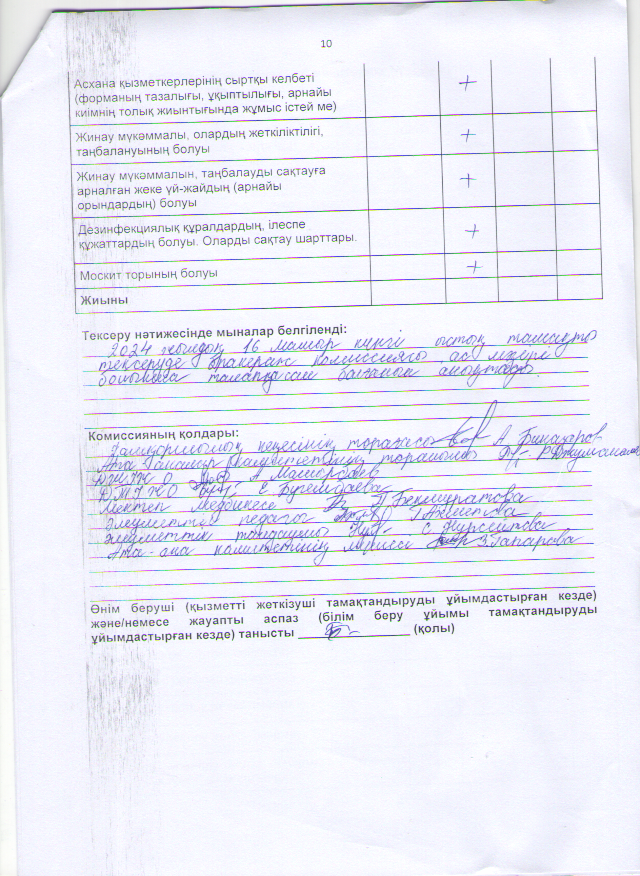 10
Асхана қызметкерлерінің сыртқы келбеті
(форманың тазалығы, ұқыптылығы, арнайы
киімнің толық жиынтығында жұмыс істей ме) +
Жинау мүкәммалы, олардың жеткіліктілігі,
таңбалануының болуы +
Жинау мүкәммалын, таңбалауды сақтауға
арналған жеке үй-жайдың (арнайы
орындардың) болуы +
Дезинфекциялық құралдардың, ілеспе
құжаттардың болуы. Оларды сақтау шарттары. +
Москит торының болуы +
Жиыны
Тексеру нәтижесінде мыналар белгіленді:
2024 жылдың 16 мамыр күнгі ыстық тамақты
тексеруде бракераж комиссиясы ас мәзірі
бойынша
Комиссияның қолдары:
Қамқоршылық кеңесінің төрағасы А
Ата
А
Е
Мектеп медбикесі П Бекмуратова
Әлеуметтік педагог Г
Әлеуметтік С
Ата-ана комитетінің мүшесі З Гапарова
Өнім беруші (қызметті жеткізуші тамақтандыруды ұйымдастырған кезде)
және/немесе жауапты аспаз (білім беру ұйымы тамақтандыруды
ұйымдастырған кезде) танысты (қолы)